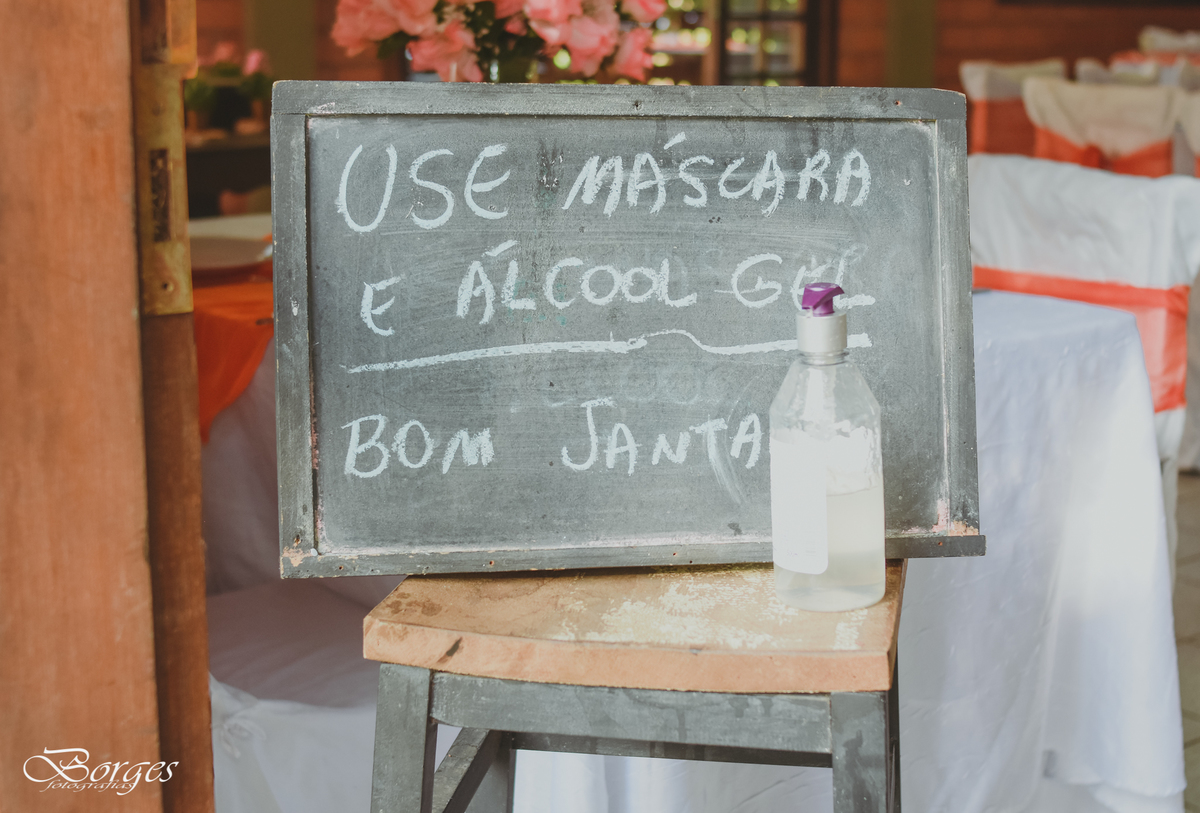 USE MÁSCARA
E ÁLCOOL GEL
BOM JANTA
Borges
fotografias